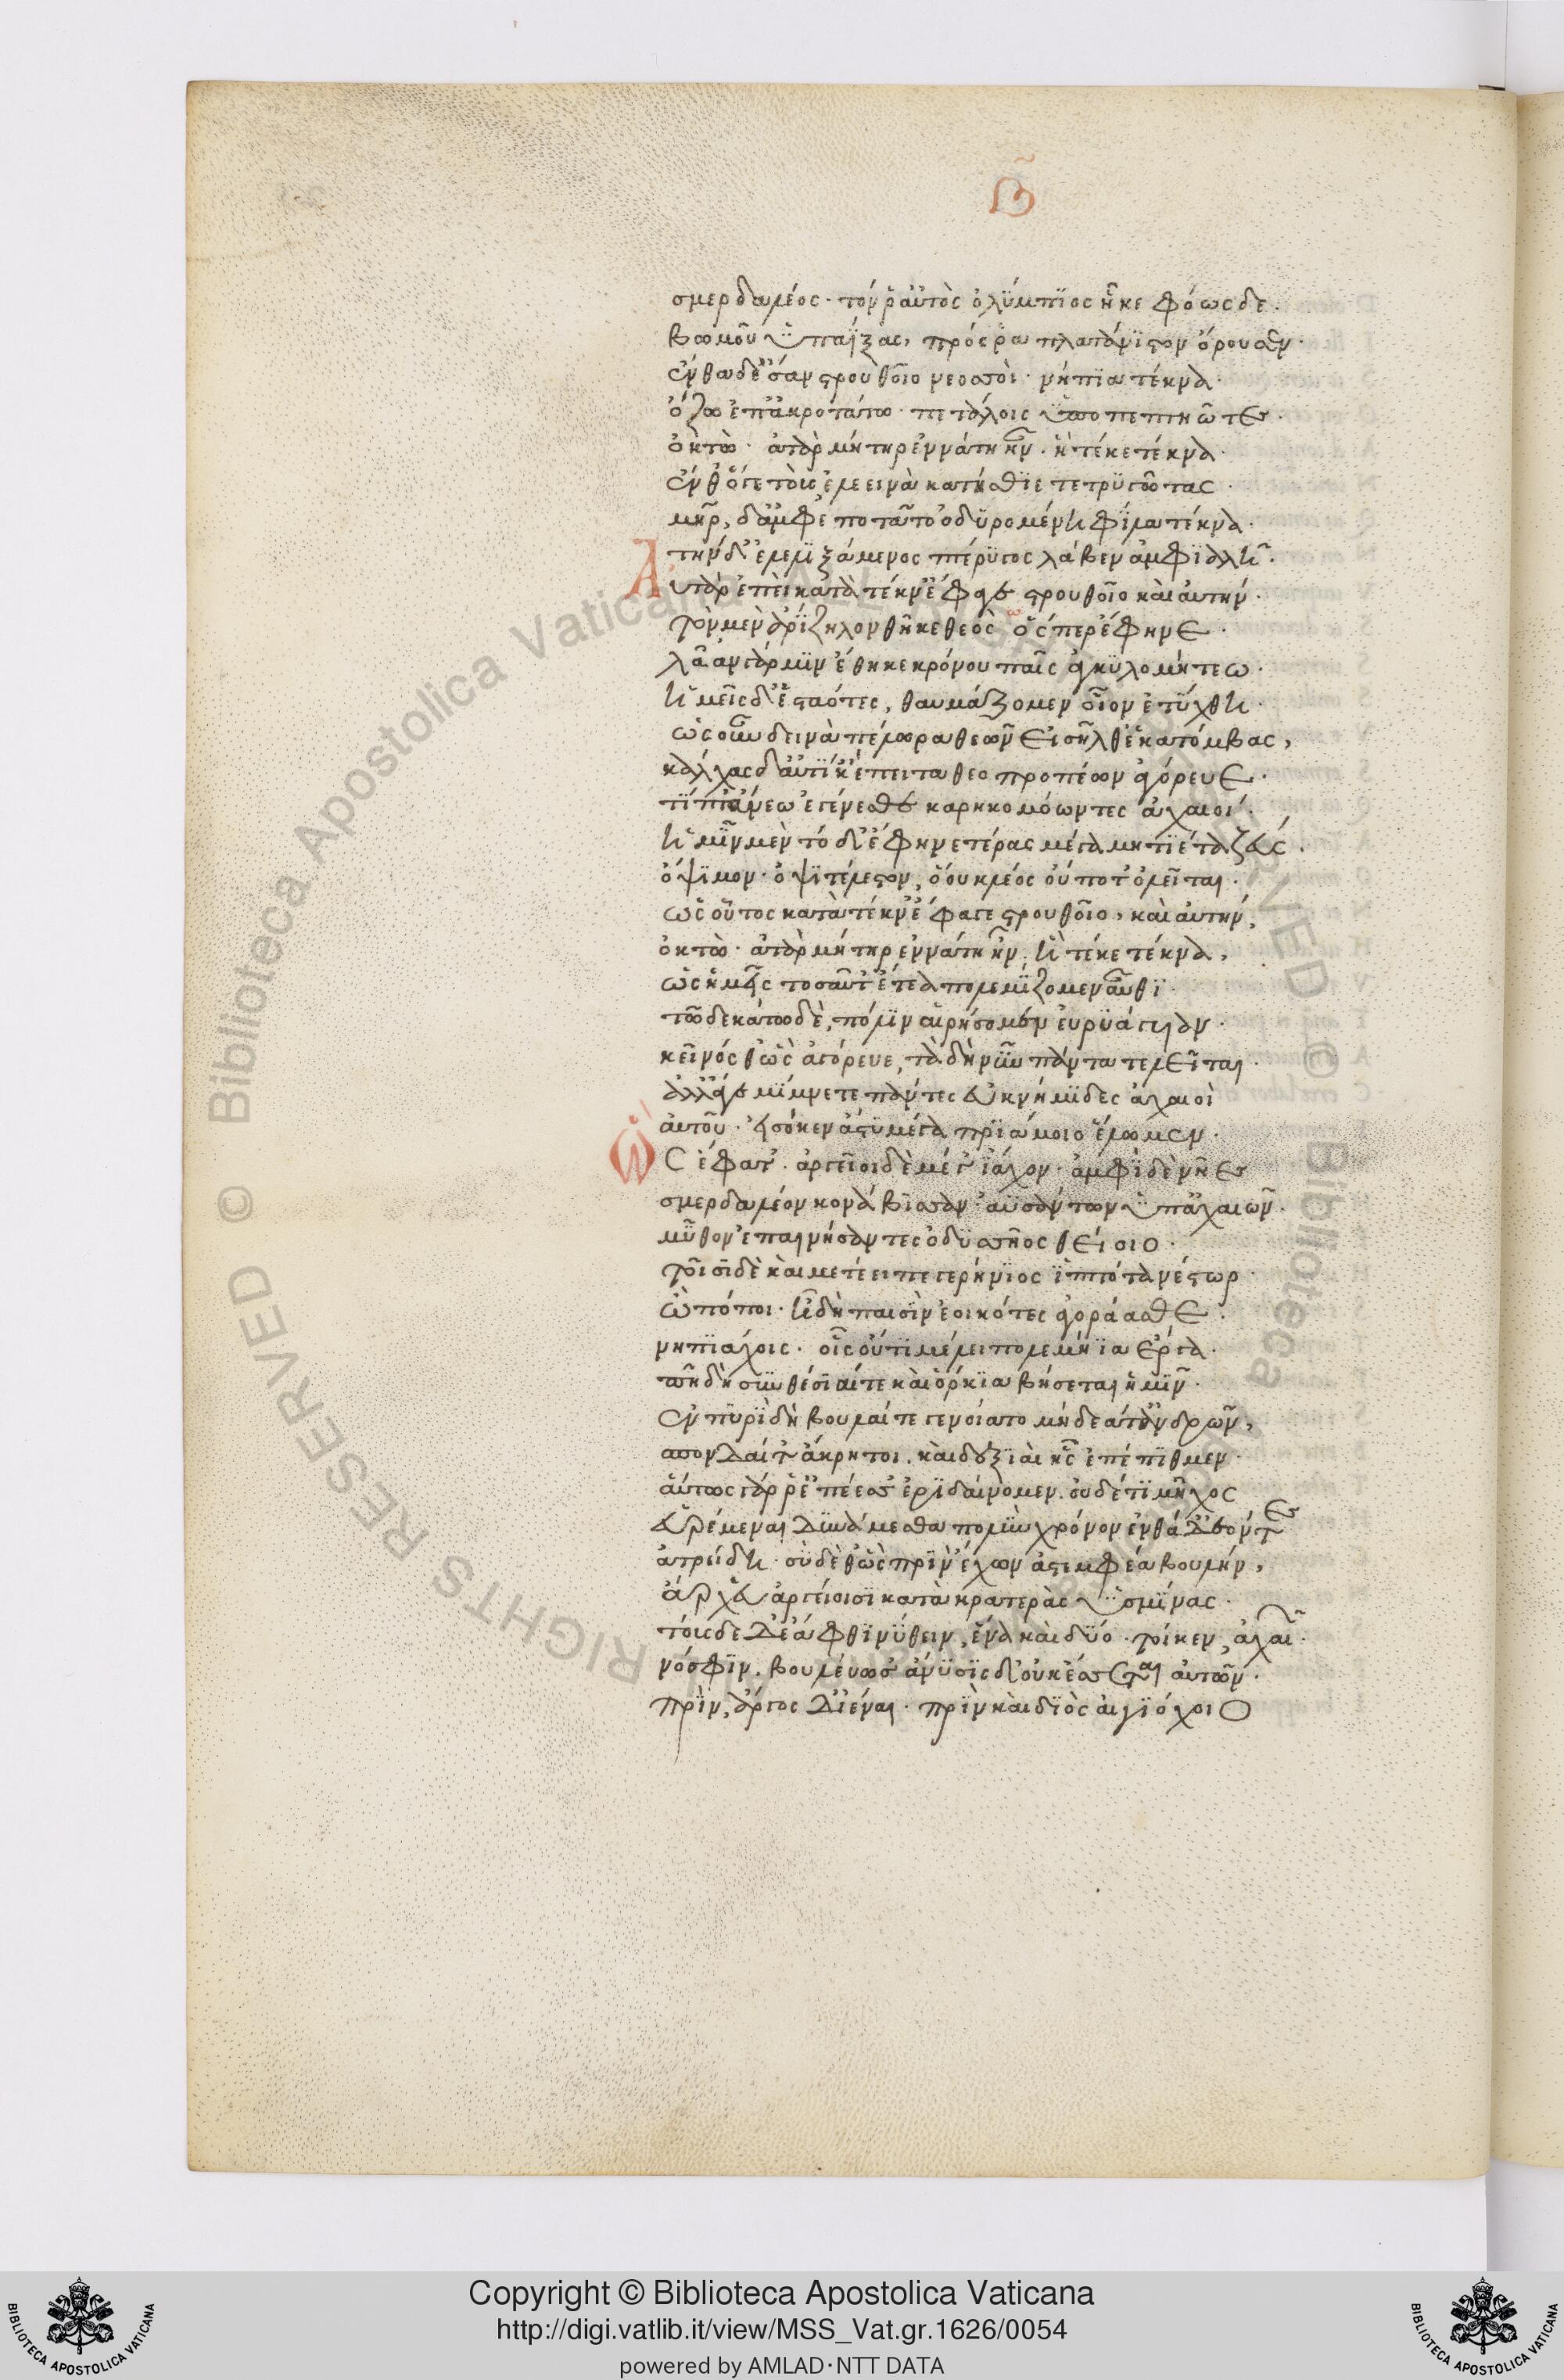 Β
σμερδαλέος· τόν ῥ' αὐτὸς ὀλύμπϊος ἧκε φόωσδε.
βωμοῦ ὑπαΐξας, πρός ῥα πλατάνϊστον ὄρουσεν·
ἔνθα δ' ἔσαν στρουθοῖο νεοσσοὶ· νήπϊα τέκνα·
ὄζω ἐπ' ἀκροτάτω· πετάλοις ὑποπεπτηῶτες·
ὀκτὼ· ἀτὰρ μήτηρ ἐννάτη ἦν· ἣ τέκε τέκνα·
ἔνθ' ὅγε τοὺς ἐλεεινὰ κατήσθϊε τετρϊγῶτας·
μηρ, δ' ἀμφεποτᾶτο ὀδϋρομένη φίλα τέκνα·
τὴν δ' ἐλελϊξάμενος πτέρϋγος λάβεν ἀμφϊαλῆ·
Αὐτὰρ ἐπὲι κατὰ τέκν' ἔφαγε στρουθοῖο κὰι αὐτήν·
τὸν μὲν ἀρΐζηλον θῆκε θεὸς ὅσπερ ἔφηνε·
λᾶαν γάρ μϊν ἔθηκε κρόνου παῖς ἀγκϋλομήτεω·
ἡμεῖς δ' ἑσταότες, θαυμάζομεν οἷον ἐτΰχθη·
ὡς οὖν δεινὰ πέλωρα θεῶν εἰσῆλθ' ἑκατόμβας,
κάλχας δ' αὐτΐκ' ἔπειτα θεοπροπέων ἀγόρευε·
τΐπτ' ἄνεω ἐγένεσθε καρηκομόωντες ἀχαιοί·
ἡμῖν μὲν τόδ' ἔφηνε τέρας μέγα μητΐετα ζεύς·
ὄψϊμον· ὀψϊτέλεστον, ὅου κλέος οὔποτ' ὀλεῖται·
ὡς οὗτος κατὰ τέκν' ἔφαγε στρουθοῖο, κὰι αὐτήν,
ὀκτὼ· ἀτὰρ μήτηρ ἐννάτη ἦν, ἣ τέκε τέκνα,
ὣς ἡμεῖς τοσαῦτ' ἔτεα πολεμΐζομεν αὖθϊ·
τῶ δεκάτω δὲ, πόλϊν αἱρήσομεν ἐυρϋάγυιαν·
κεῖνός θ' ὣς ἀγόρευε, τὰ δὴ νῦν πάντα τελεῖται·
ἀλλ' ἄγε μΐμνετε πάντες ἐυκνήμϊδες ἀχαιοὶ
αὐτοῦ· εἰσόκεν ἄστϋ μέγα πρϊάμοιο ἕλωμεν·
Ὣς ἔφατ'· ἀργεῖοι δὲ μέγ' ἴαχον· ἀμφῒ δὲ νῆες
σμερδαλέον κονάβϊσαν ἀϋσάντων ὑπ' ἀχαιῶν·
μῦθον ἐπαινήσαντες ὀδϋσσῆος θείοιο·
τοῖσϊ δὲ κὰι μετέειπε γερήνϊος ἱππότα νέστωρ·
ὦ πόποι· ἦ δὴ παισῒν ἐοικότες ἀγοράασθε·
νηπϊάχοις· οἷς οὔτϊ μέλει πολεμήϊα ἔργα·
πῆ δὴ σϋνθεσΐαι τε κὰι ὅρκϊα βήσεται ἡμῖν·
ἐν πϋρῒ δὴ βουλαί τε γενοίατο μήδεά τ' ἀνδρῶν,
σπονδαί τ' ἄκρητοι· κὰι δεξϊὰι ᾗς ἐπέπϊθμεν·
αὔτως γάρ ῥ' ἐπέεσσ' ἐρϊδαίνομεν· οὐδέ τϊ μῆχος
εὑρέμεναι δϋνάμεσθα πολὺν χρόνον ἐνθάδ' ἐόντες
ἀτρείδη· σὺ δὲ θ' ὡς πρῒν ἔχων ἀστεμφέα βουλήν,
ἄρχευ ἀργείοισϊ κατὰ κρατερὰς ὑσμΐνας·
τούσδε δ' ἔα φθϊνΰθειν, ἕνα κὰι δύο· τοίκεν, ἀχαιῶν·
νόσφϊν· βουλεύωσ' ἄνϋσϊς δ' οὐκ ἔσσεται αὐτῶν·
πρῒν, ἄργος δ' ἰέναι· πρῒν κὰι δϊὸς αἰγϊόχοιο
Copyright © Biblioteca Apostolica Vaticana
http://digi.vatlib.it/view/MSS_Vat.gr.1626/0054
powered by AMLAD·NTT DATA